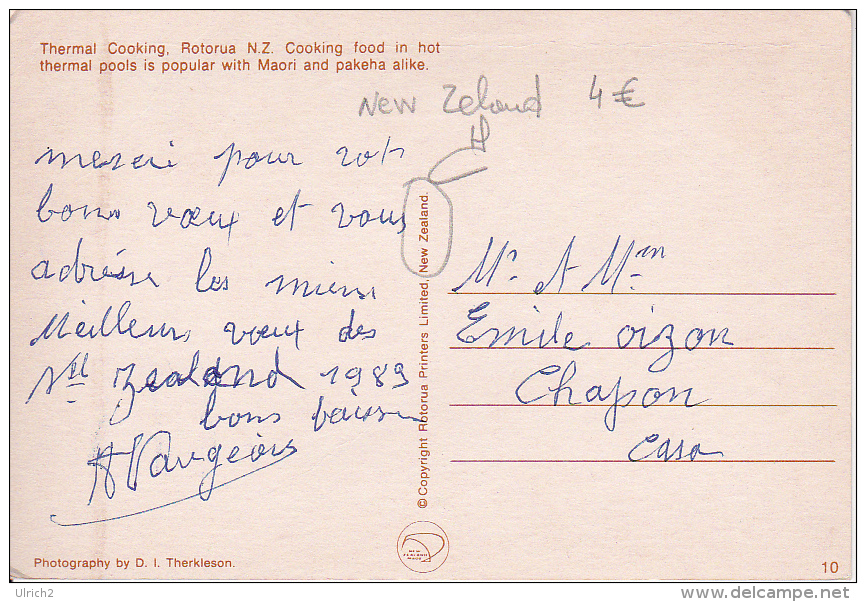 Thermal Cooking, Rotorua N.Z. Cooking food in hot
thermal pools is popular with Maori and pakeha alike.
New Zeland 4 €
merci pour vot
bons vœux et vous
adresse les miens
Meilleurs vœux des
Nll Zealand 1989
bons baisers
© Copyright Rotorua Printers Limited, New Zealand.
Mr et Mm
Emile oizon
Chapon
Casa
NEW ZEALAND MADE
Photography by D. I. Therkleson.
10
Ulrich2
www.delcampe.net